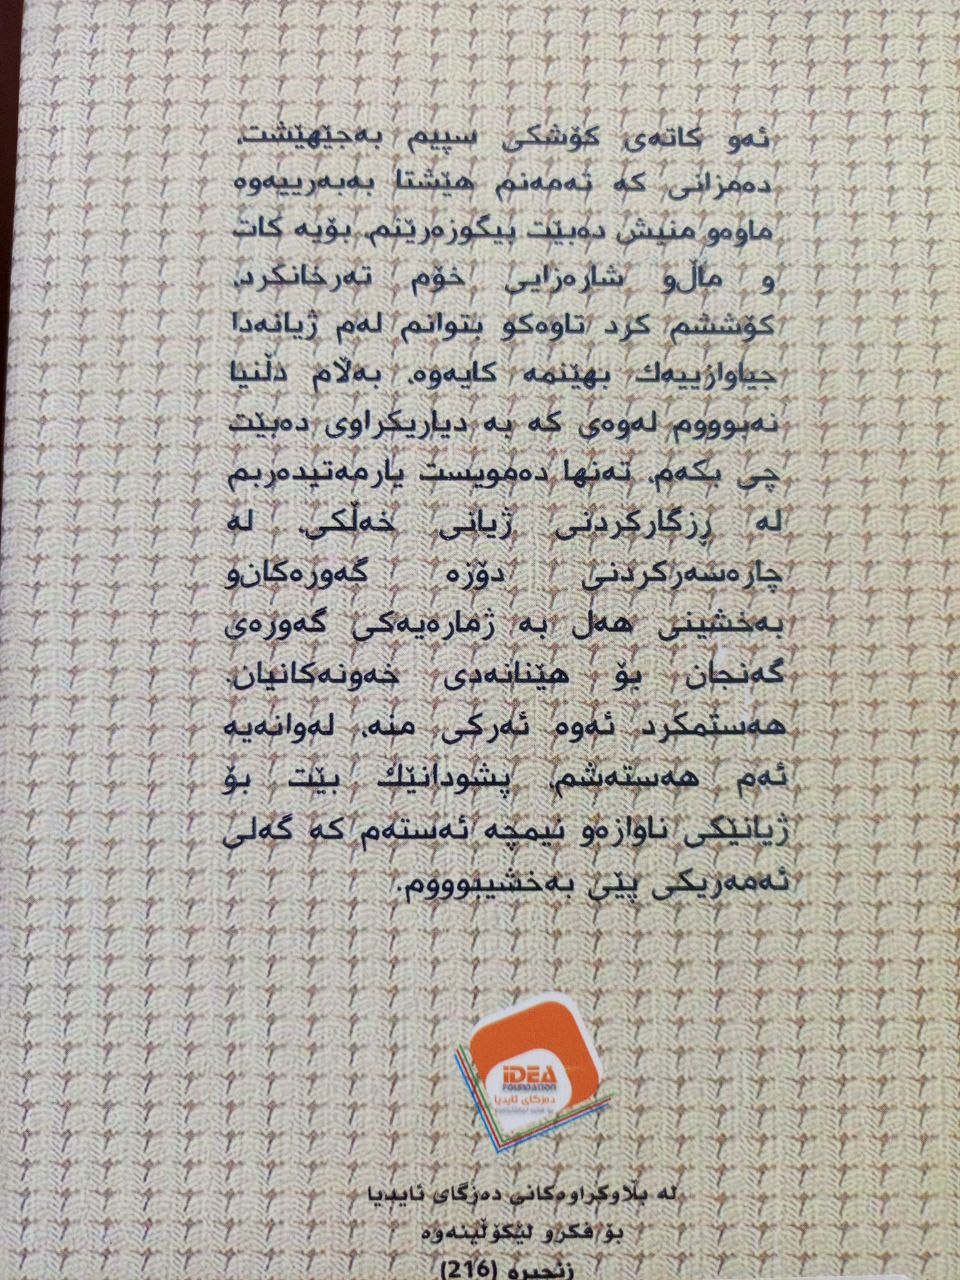 ئەو کاتەی کۆشکی سپیم بەجێهێشت،
دەمزانی کە تەمەنم هێشتا بەبەرییەوە
ماوەو منیش دەبێت بیگوزەرێنم، بۆیە کات
و ماڵو شارەزایی خۆم تەرخانکرد،
کۆششم کرد تاوەکو بتوانم لەم ژیانەدا
جیاوازییەك بهێنمە کایەوە، بەڵام دڵنیا
نەبوووم لەوەی کە بە دیاریکراوی دەبێت
چی بکەم، تەنها دەمویست یارمەتیدەربم
لە ڕزگارکردنی ژیانی خەڵکی، لە
چارەسەرکردنی دۆزە گەورەکانو
بەخشینی هەل بە ژمارەیەکی گەورەی
گەنجان بۆ هێنانەدی خەونەکانیان.
هەستمکرد ئەوە ئەرکی منە، لەوانەیە
ئەم هەستەشم، پشودانێك بێت بۆ
ژیانێکی ناوازەو نیمچە ئەستەم کە گەلی
ئەمەریکی پێی بەخشیبوووم.
iDEA
FOUNDATION
دەزگای ئایدیا
لە بڵاوکراوەکانی دەزگای ئایدیا
بۆ فکرو لێکۆڵینەوە
زنجیرە (216)